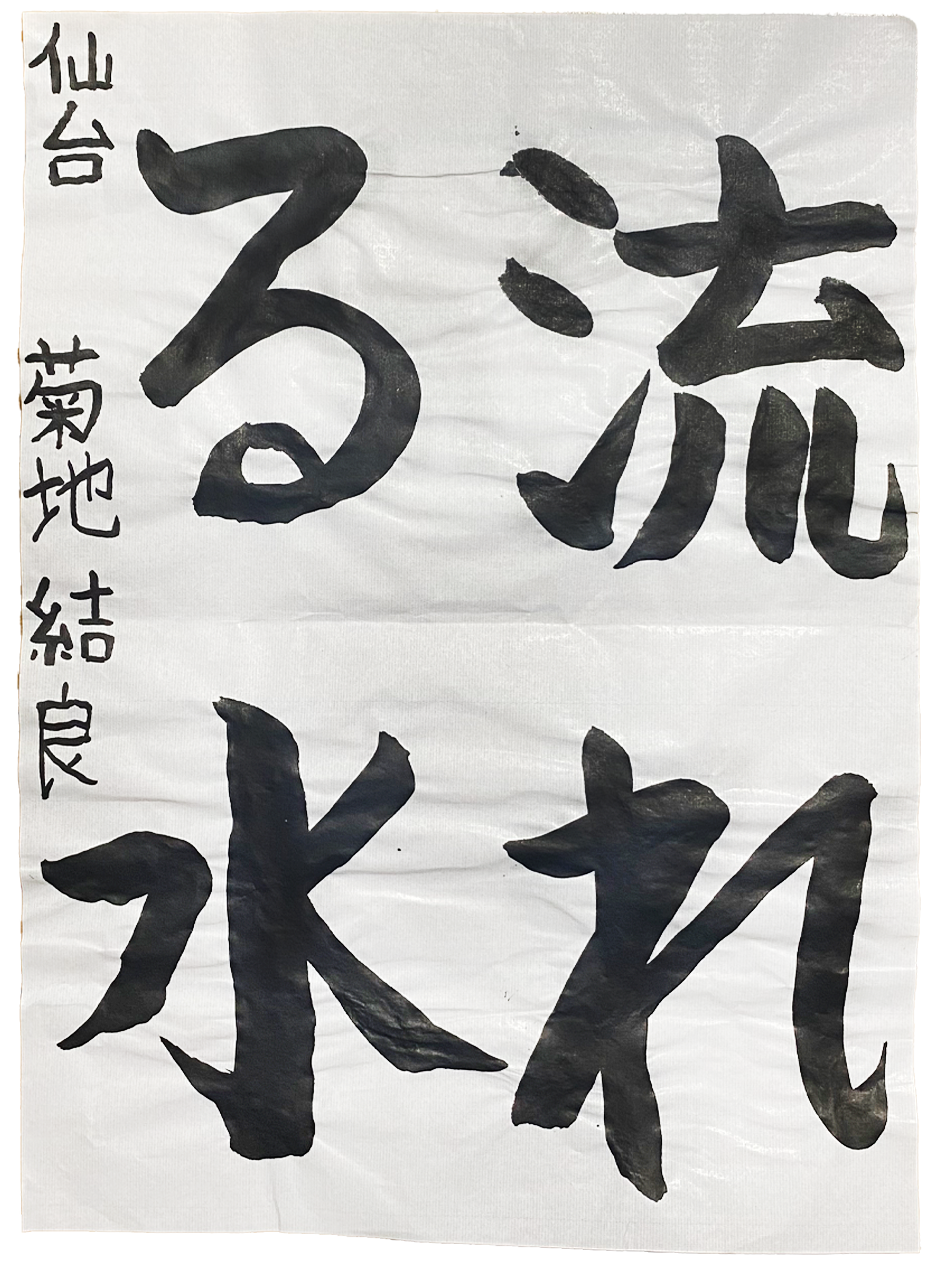 流れ
る水
仙台 菊地結良